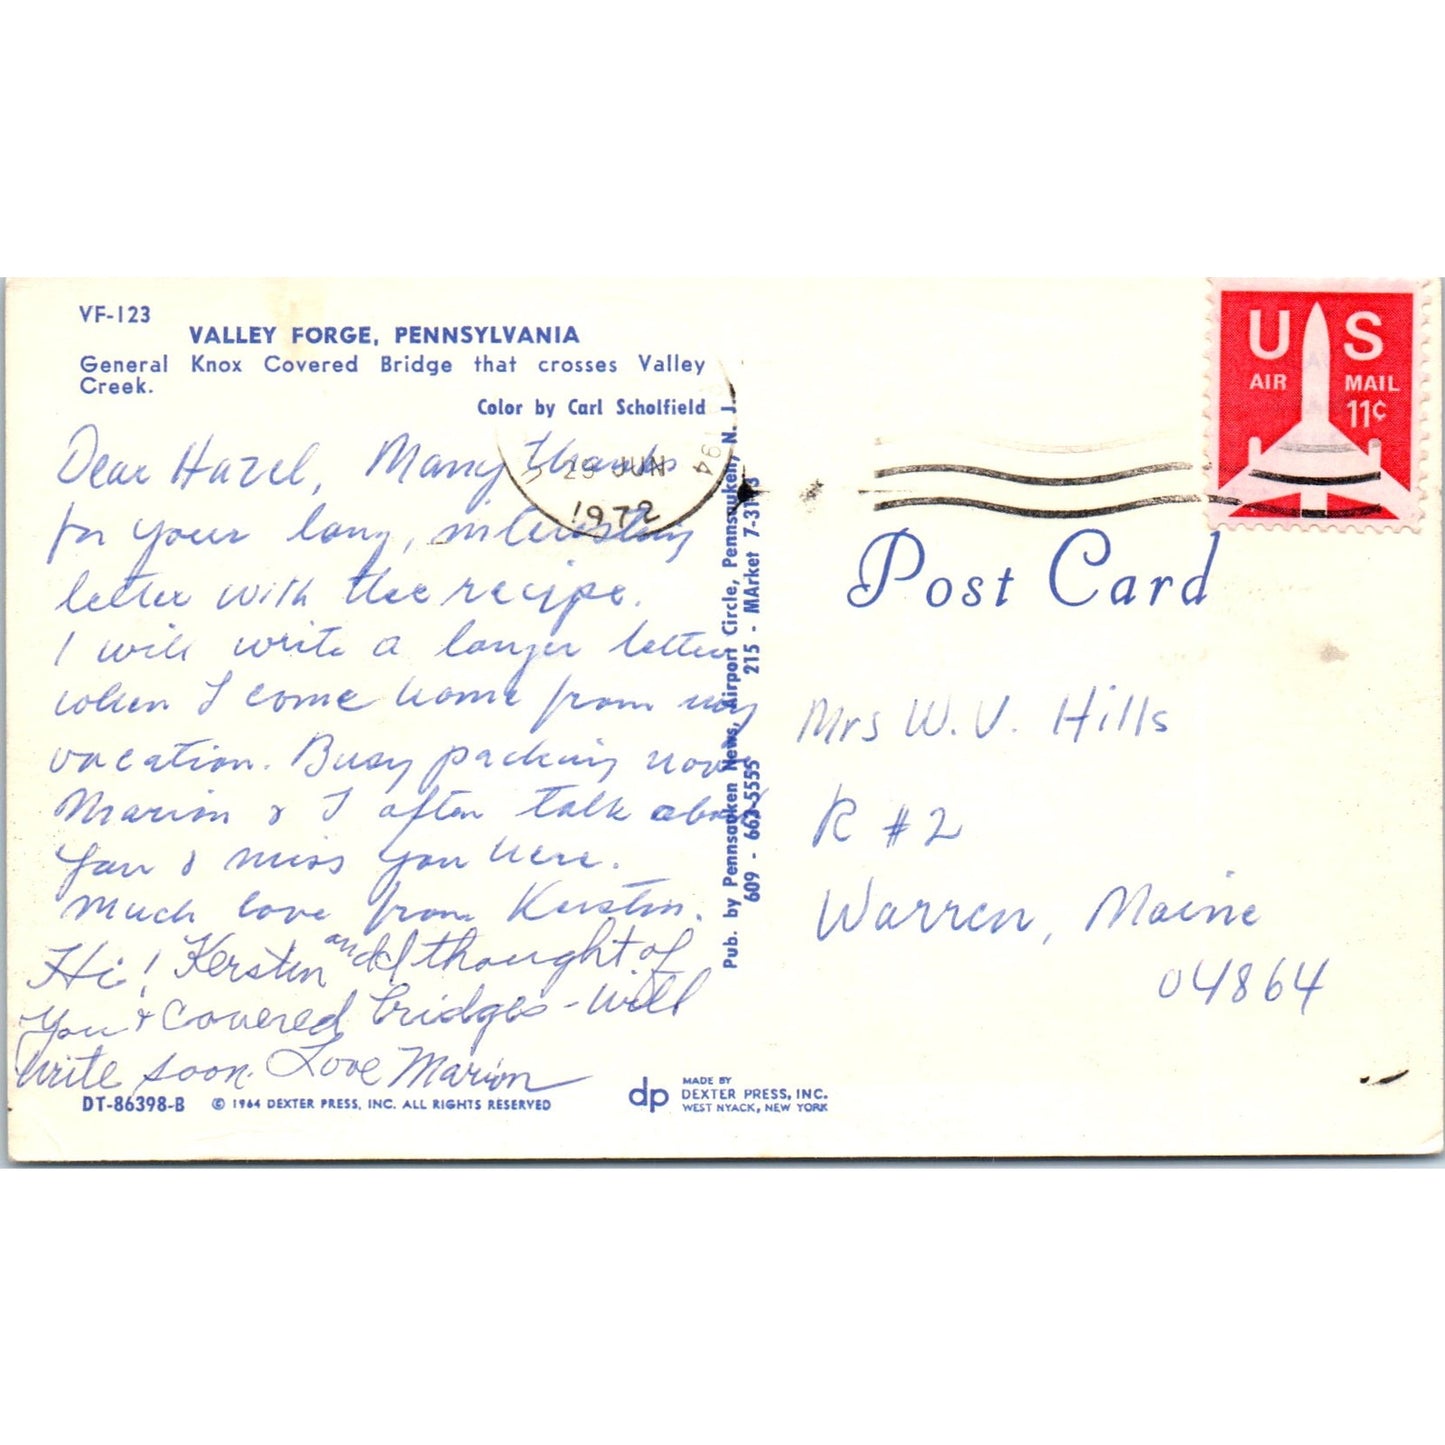 VF-123
VALLEY FORGE, PENNSYLVANIA
General Knox Covered Bridge that crosses Valley
Creek.
Color by Carl Scholfield
Dear Hazel, Many thanks
for your long, interesting
letter with the recipe.
I will write a longer letter
when I come home from my
vacation. Busy packing now
Marion & I often talk about
you & miss you here.
Much love from Kerstin.
Hi! Kerstin and I thought of
you & covered bridges - will
write soon. Love Marion
DT-86398-B © 1964 DEXTER PRESS, INC. ALL RIGHTS RESERVED
dp MADE BY
DEXTER PRESS, INC.
WEST NYACK, NEW YORK
Pub. by Pennsauken News, Airport Circle, Pennsauken, N. J.
609 - 663-5555 215 - MArket 7-3143
194
29 JUN
1972
US
AIR MAIL
11¢
Post Card
Mrs W. V. Hills
R #2
Warren, Maine
04864